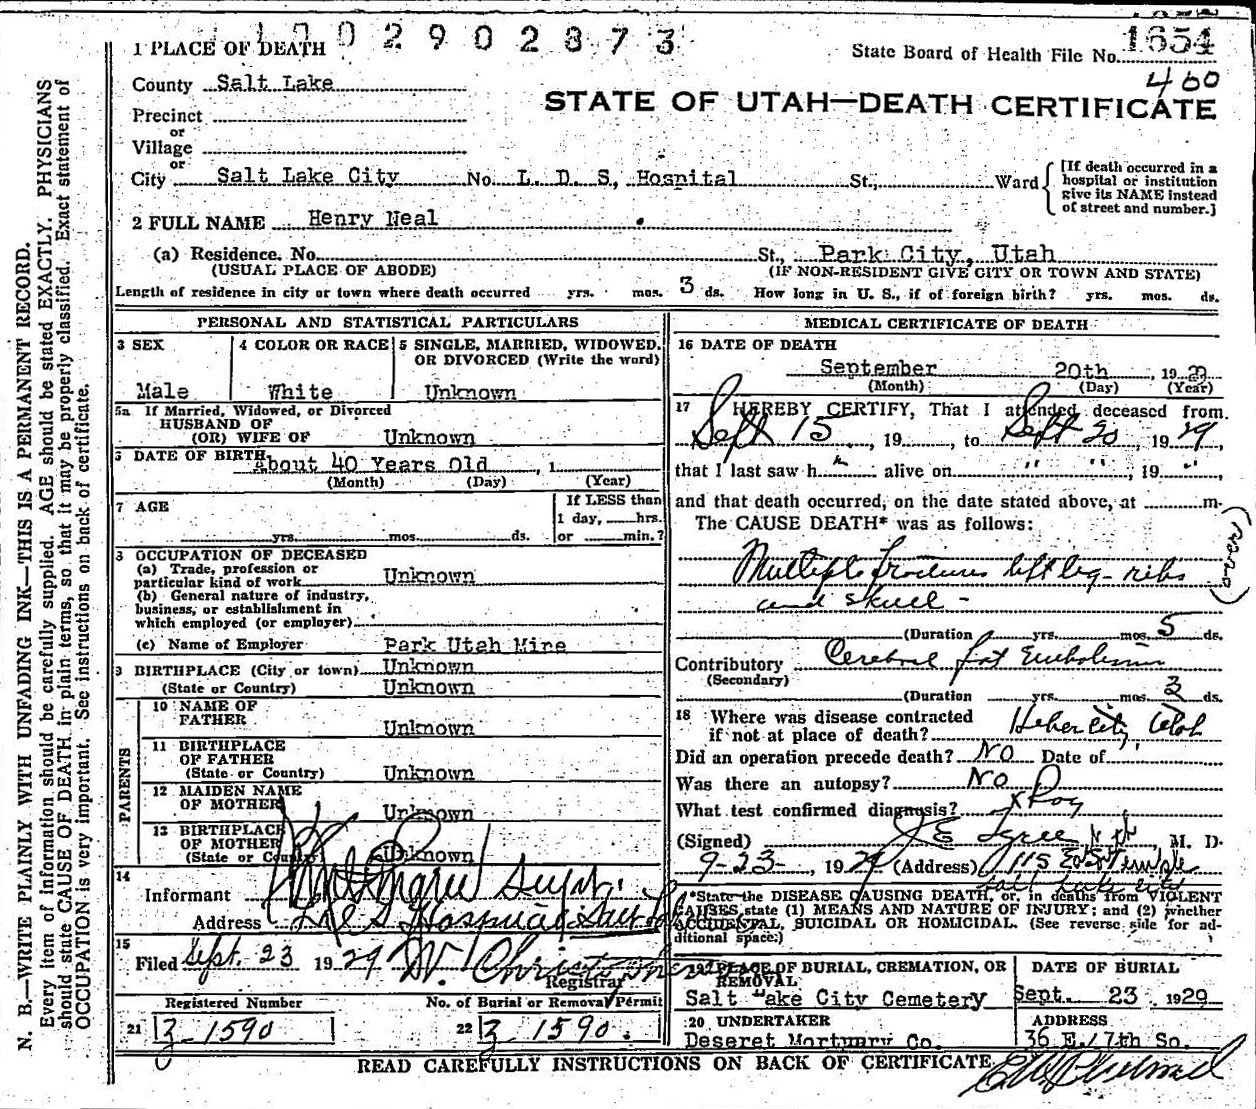 1002902873
1 PLACE OF DEATH
State Board of Health File No. 1654
460
County Salt Lake
STATE OF UTAH—DEATH CERTIFICATE
Precinct
or
Village
or
City Salt Lake City No. L. D. S, Hospital St., Ward
[If death occurred in a hospital or institution give its NAME instead of street and number.]
2 FULL NAME Henry Neal
(a) Residence. No. St., Park City, Utah
(USUAL PLACE OF ABODE) (IF NON-RESIDENT GIVE CITY OR TOWN AND STATE)
Length of residence in city or town where death occurred yrs. mos. 3 ds. How long in U. S., if of foreign birth? yrs. mos. ds.
PERSONAL AND STATISTICAL PARTICULARS
3 SEX 4 COLOR OR RACE 5 SINGLE, MARRIED, WIDOWED,
OR DIVORCED (Write the word)
Male White Unknown
5a If Married, Widowed, or Divorced
HUSBAND OF
(OR) WIFE OF Unknown
6 DATE OF BIRTH About 40 Years Old , 1
(Month) (Day) (Year)
7 AGE If LESS than
1 day, hrs.
yrs. mos. ds. or min.?
8 OCCUPATION OF DECEASED
(a) Trade, profession or
particular kind of work Unknown
(b) General nature of industry,
business, or establishment in
which employed (or employer)
(c) Name of Employer Park Utah Mine
9 BIRTHPLACE (City or town) Unknown
(State or Country) Unknown
PARENTS
10 NAME OF
FATHER Unknown
11 BIRTHPLACE
OF FATHER
(State or Country) Unknown
12 MAIDEN NAME
OF MOTHER Unknown
13 BIRTHPLACE
OF MOTHER
(State or Country) Unknown
14
Informant Supt.
Address L D S Hospital
15
Filed Sept. 23 1929 W. Christopherson
Registrar
Registered Number No. of Burial or Removal Permit
21 Z 1590 22 Z 1590.
MEDICAL CERTIFICATE OF DEATH
16 DATE OF DEATH
September 20th , 1929
(Month) (Day) (Year)
17 I HEREBY CERTIFY, That I attended deceased from
Sept 15 , 19 , to Sept 20 , 1929,
that I last saw h alive on " " , 19 ",
and that death occurred, on the date stated above, at m.
The CAUSE DEATH* was as follows:
Multiple fractures left leg - ribs
and skull -
(over)
(Duration yrs. mos. 5 ds.
Contributory Cerebral fat Embolism
(Secondary)
(Duration yrs. mos. 3 ds.
18 Where was disease contracted
if not at place of death? Heber City, Utah
Did an operation precede death? No Date of
Was there an autopsy? No
What test confirmed diagnosis? X Ray
(Signed) M. D.
9-23- , 1929 (Address) 115 E So Temple
Salt Lake City
*State the DISEASE CAUSING DEATH, or, in deaths from VIOLENT
CAUSES, state (1) MEANS AND NATURE OF INJURY; and (2) whether
ACCIDENTAL, SUICIDAL OR HOMICIDAL. (See reverse side for ad-
ditional space.)
19 PLACE OF BURIAL, CREMATION, OR
REMOVAL DATE OF BURIAL
Salt Lake City Cemetery Sept. 23 1929
20 UNDERTAKER ADDRESS
Deseret Mortuary Co. 36 E. 7th So.
READ CAREFULLY INSTRUCTIONS ON BACK OF CERTIFICATE
N. B.—WRITE PLAINLY WITH UNFADING INK—THIS IS A PERMANENT RECORD.
Every item of information should be carefully supplied. AGE should be stated EXACTLY. PHYSICIANS
should state CAUSE OF DEATH in plain terms, so that it may be properly classified. Exact statement of
OCCUPATION is very important. See instructions on back of certificate.